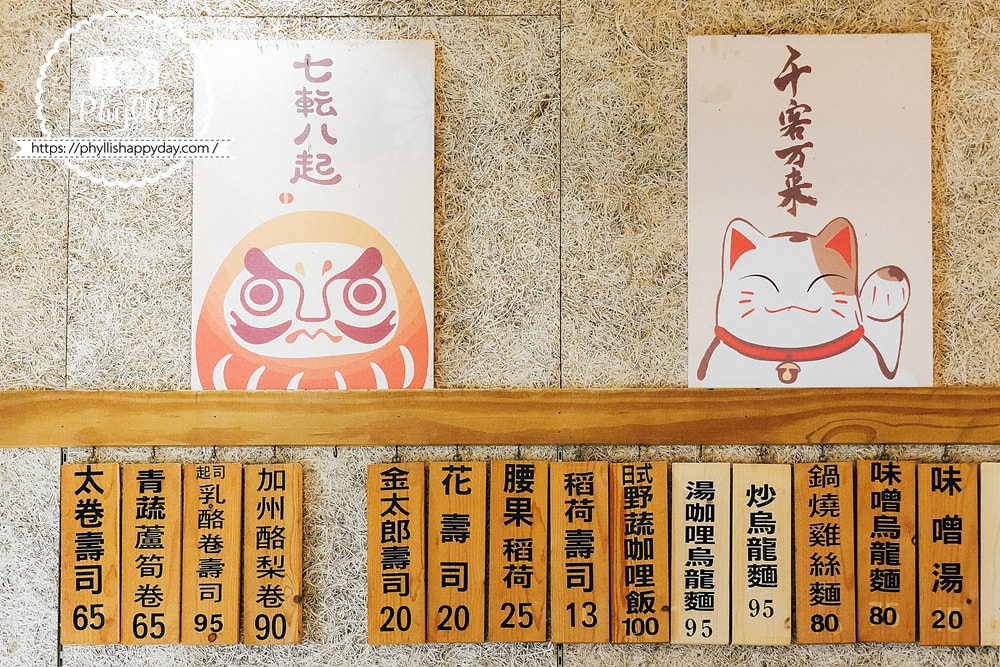 Phyllis
https://phyllishappyday.com/
七転八起
千客万来
太卷壽司 65
青蔬蘆筍卷 65
起司乳酪卷壽司 95
加州酪梨卷 90
金太郎壽司 20
花壽司 20
腰果稻荷 25
稻荷壽司 13
日式野蔬咖哩飯 100
湯咖哩烏龍麵 95
炒烏龍麵 95
鍋燒雞絲麵 80
味噌烏龍麵 80
味噌湯 20